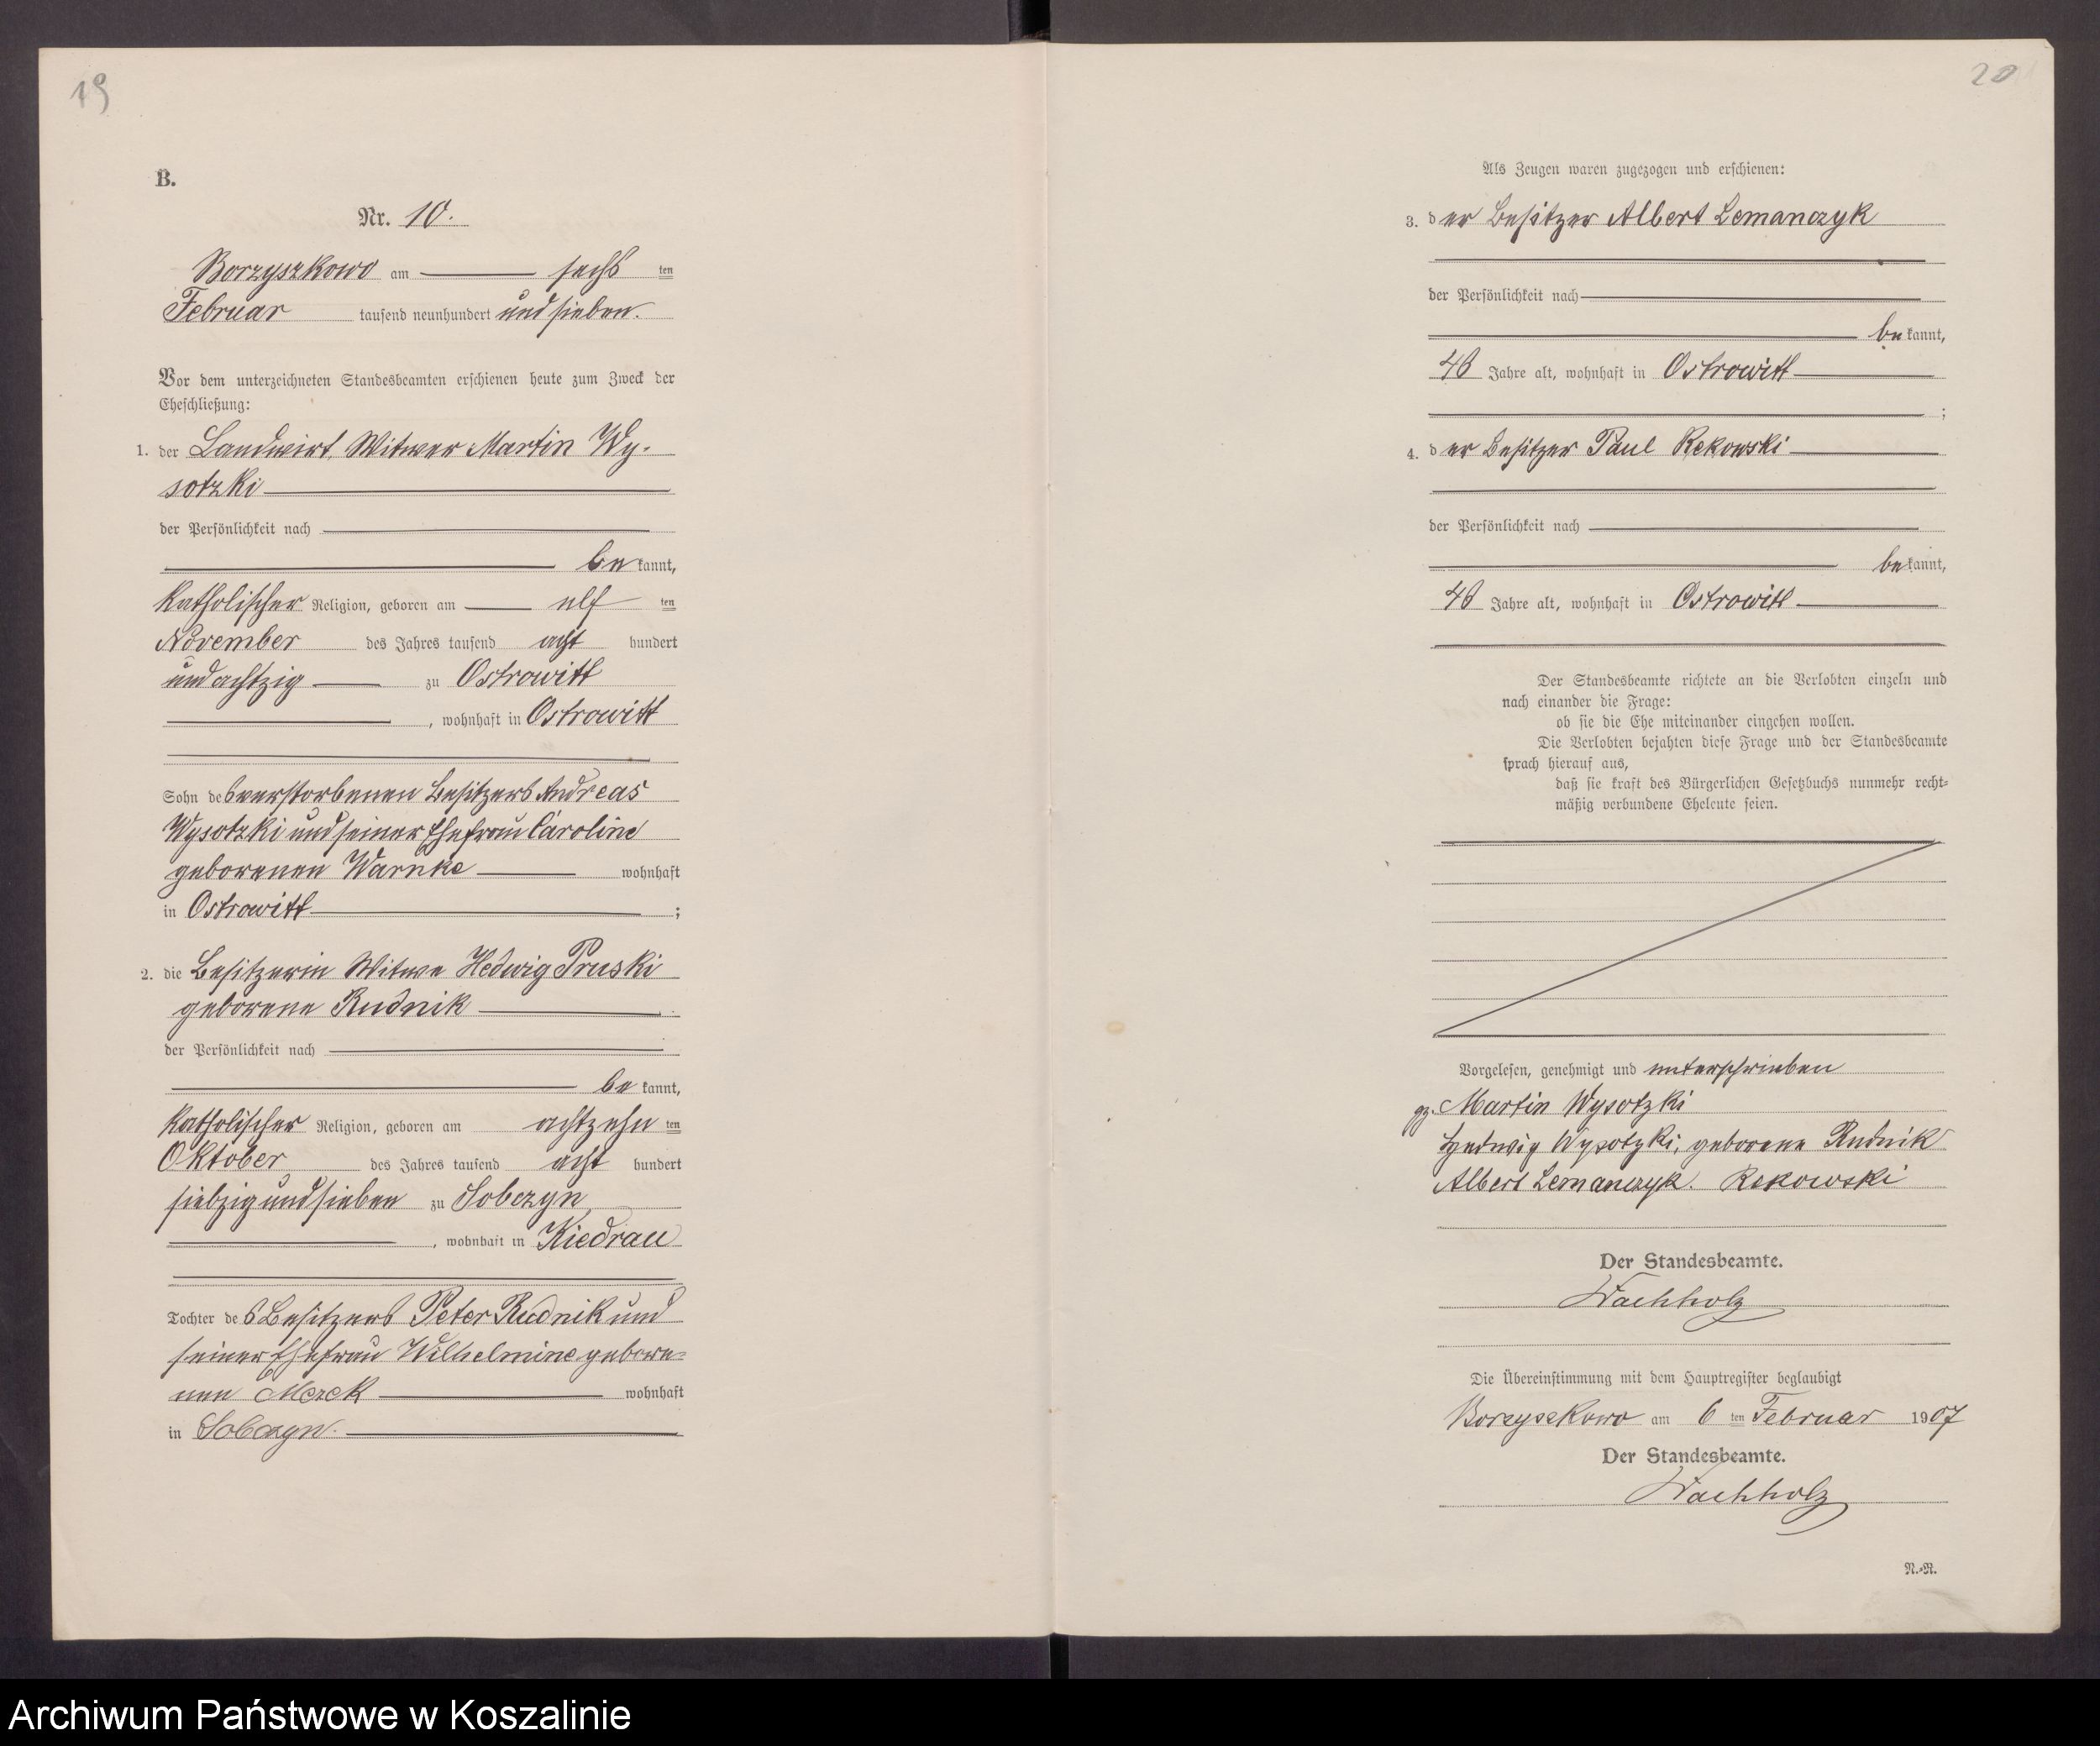 19
B.
Nr. 10.
Borzyszkowo am sechs ten
Februar tausend neunhundert und sieben.
Vor dem unterzeichneten Standesbeamten erschienen heute zum Zweck der
Eheschließung:
1. der Landwirt, Witwer Martin Wy-
sotzki
der Persönlichkeit nach
be kannt,
katholischer Religion, geboren am elf ten
November des Jahres tausend acht hundert
und achtzig zu Ostrowitt
, wohnhaft in Ostrowitt
Sohn des verstorbenen Besitzers Andreas
Wysotzki und seiner Ehefrau Caroline
geborenen Warnke wohnhaft
in Ostrowitt ;
2. die Besitzerin Witwe Hedwig Pruski
geborene Rudnik
der Persönlichkeit nach
be kannt,
katholischer Religion, geboren am achtzehn ten
Oktober des Jahres tausend acht hundert
siebzig und sieben zu Sobczyn
, wohnhaft in Kiedrau
Tochter des Besitzers Peter Rudnik und
seiner Ehefrau Wilhelmine gebore-
nen Merck wohnhaft
in Sobczyn.
20
Als Zeugen waren zugezogen und erschienen:
3. der Besitzer Albert Lemanczyk
der Persönlichkeit nach
be kannt,
Jahre alt, wohnhaft in Ostrowitt
;
4. der Besitzer Paul Rekowski
der Persönlichkeit nach
be kannt,
Jahre alt, wohnhaft in Ostrowitt
Der Standesbeamte richtete an die Verlobten einzeln und
nach einander die Frage:
ob sie die Ehe miteinander eingehen wollen.
Die Verlobten bejahten diese Frage und der Standesbeamte
sprach hierauf aus,
daß sie kraft des Bürgerlichen Gesetzbuchs nunmehr recht-
mäßig verbundene Eheleute seien.
Vorgelesen, genehmigt und unterschrieben
gz. Martin Wysotzki
Hedwig Wysotzki, geborene Rudnik
Albert Lemanczyk. Rekowski
Der Standesbeamte.
Wachholz
Die Übereinstimmung mit dem Hauptregister beglaubigt
Borzyszkowo am 6 ten Februar 1907
Der Standesbeamte.
Wachholz
N.-R.
Archiwum Państwowe w Koszalinie